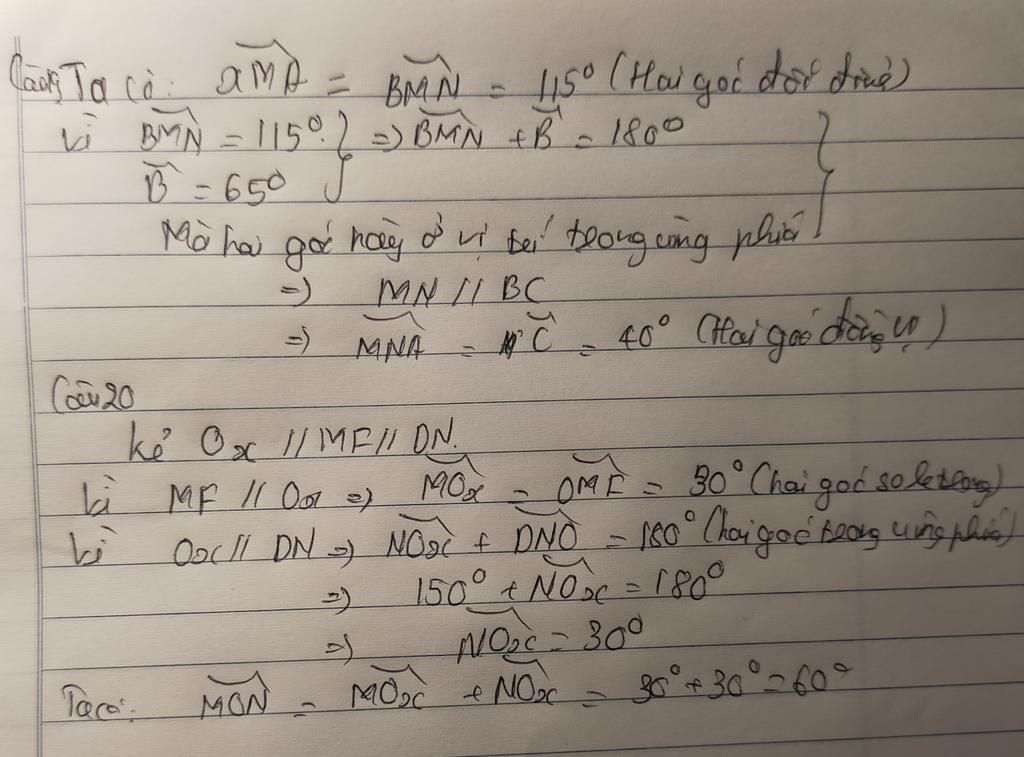 Ta có: aMA = BMN = 115° (Hai góc đối đỉnh)
Vì BMN = 115° } => BMN + B = 180° }
B = 65°
Mà hai góc này ở vị trí trong cùng phía
=> MN // BC
=> MNA = C = 40° (Hai góc đồng vị)
Câu 20
kẻ Ox // MF // DN.
Vì MF // Ox => MOx = OMF = 30° (hai góc so le trong)
Vì Ox // DN => NOx + DNO = 180° (hai góc trong cùng phía)
=> 150° + NOx = 180°
=> NOx = 30°
Ta có: MON = MOx + NOx = 30° + 30° = 60°